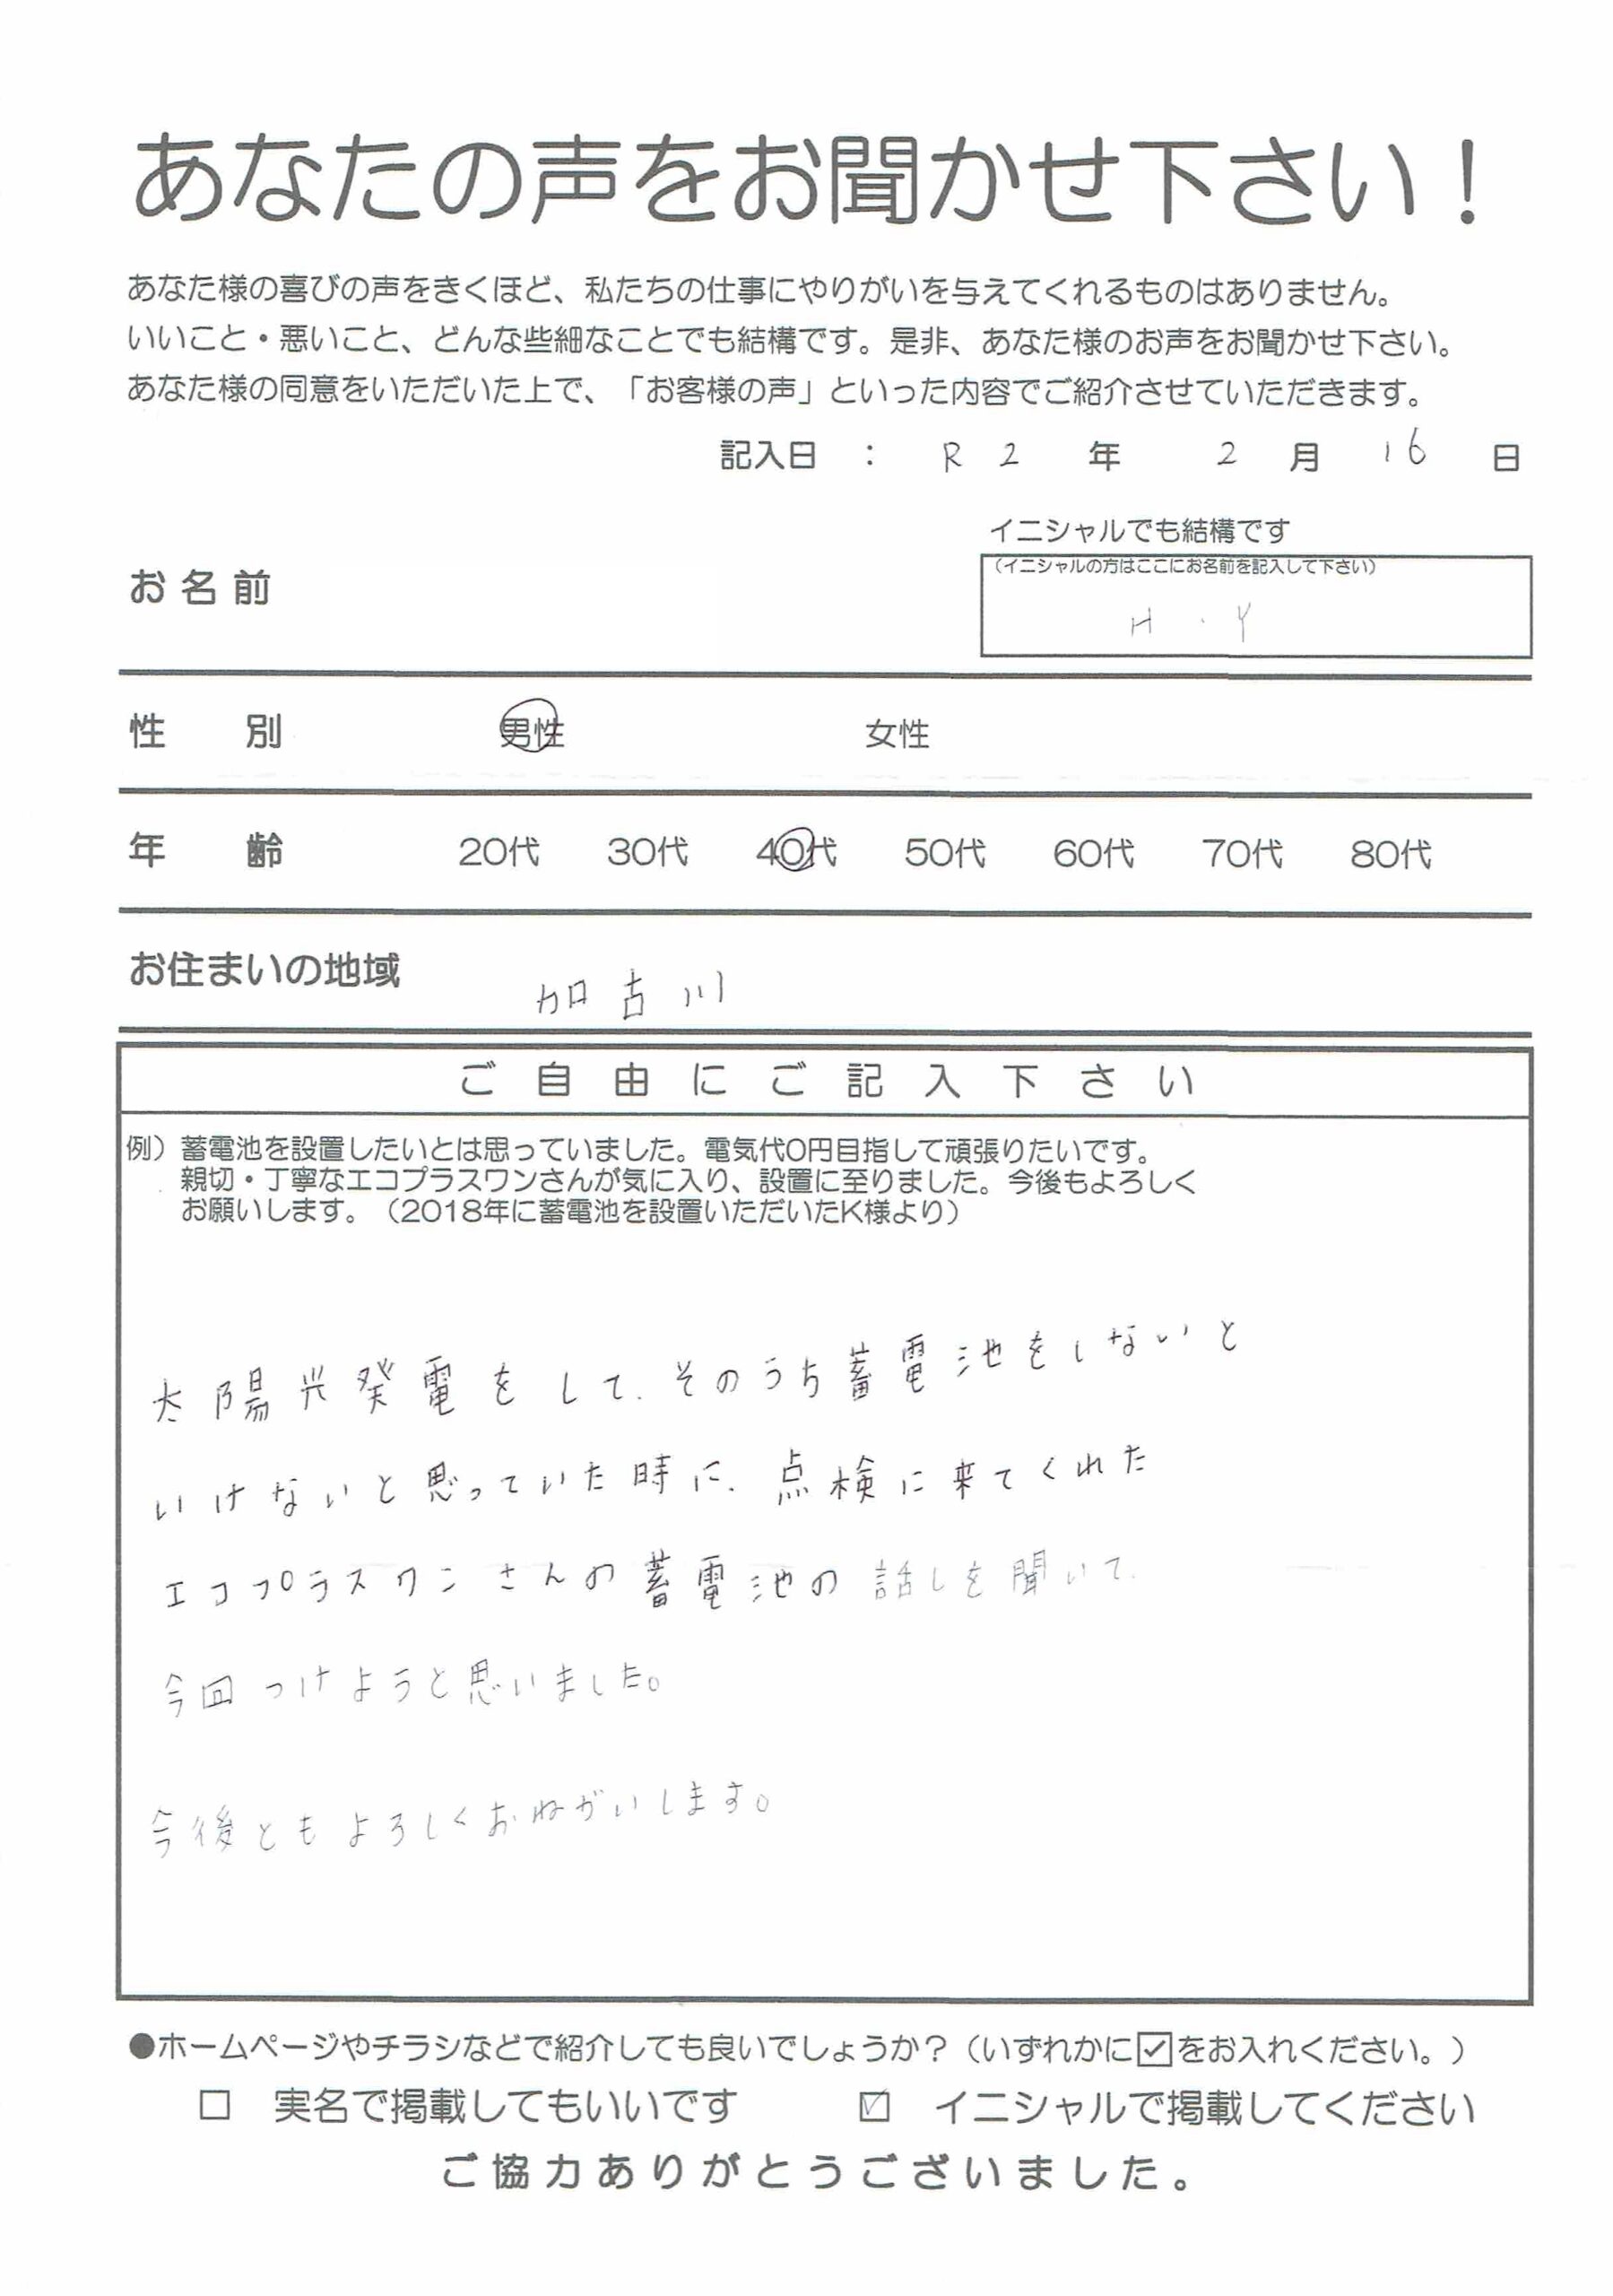 あなたの声をお聞かせ下さい！
あなた様の喜びの声をきくほど、私たちの仕事にやりがいを与えてくれるものはありません。
いいこと・悪いこと、どんな些細なことでも結構です。是非、あなた様のお声をお聞かせ下さい。
あなた様の同意をいただいた上で、「お客様の声」といった内容でご紹介させていただきます。
記入日 ： R2 年 2 月 16 日
イニシャルでも結構です
お名前 （イニシャルの方はここにお名前を記入して下さい）
H・Y
性別 男性 女性
年齢 20代 30代 40代 50代 60代 70代 80代
お住まいの地域 加古川
ご自由にご記入下さい
例）蓄電池を設置したいとは思っていました。電気代0円目指して頑張りたいです。
親切・丁寧なエコプラスワンさんが気に入り、設置に至りました。今後もよろしく
お願いします。（2018年に蓄電池を設置いただいたK様より）
太陽光発電をして、そのうち蓄電池をしないと
いけないと思っていた時に、点検に来てくれた
エコプラスワンさんの蓄電池の話しを聞いて、
今回つけようと思いました。
今後ともよろしくおねがいします。
●ホームページやチラシなどで紹介しても良いでしょうか？（いずれかに☑をお入れください。）
□ 実名で掲載してもいいです ☑ イニシャルで掲載してください
ご協力ありがとうございました。